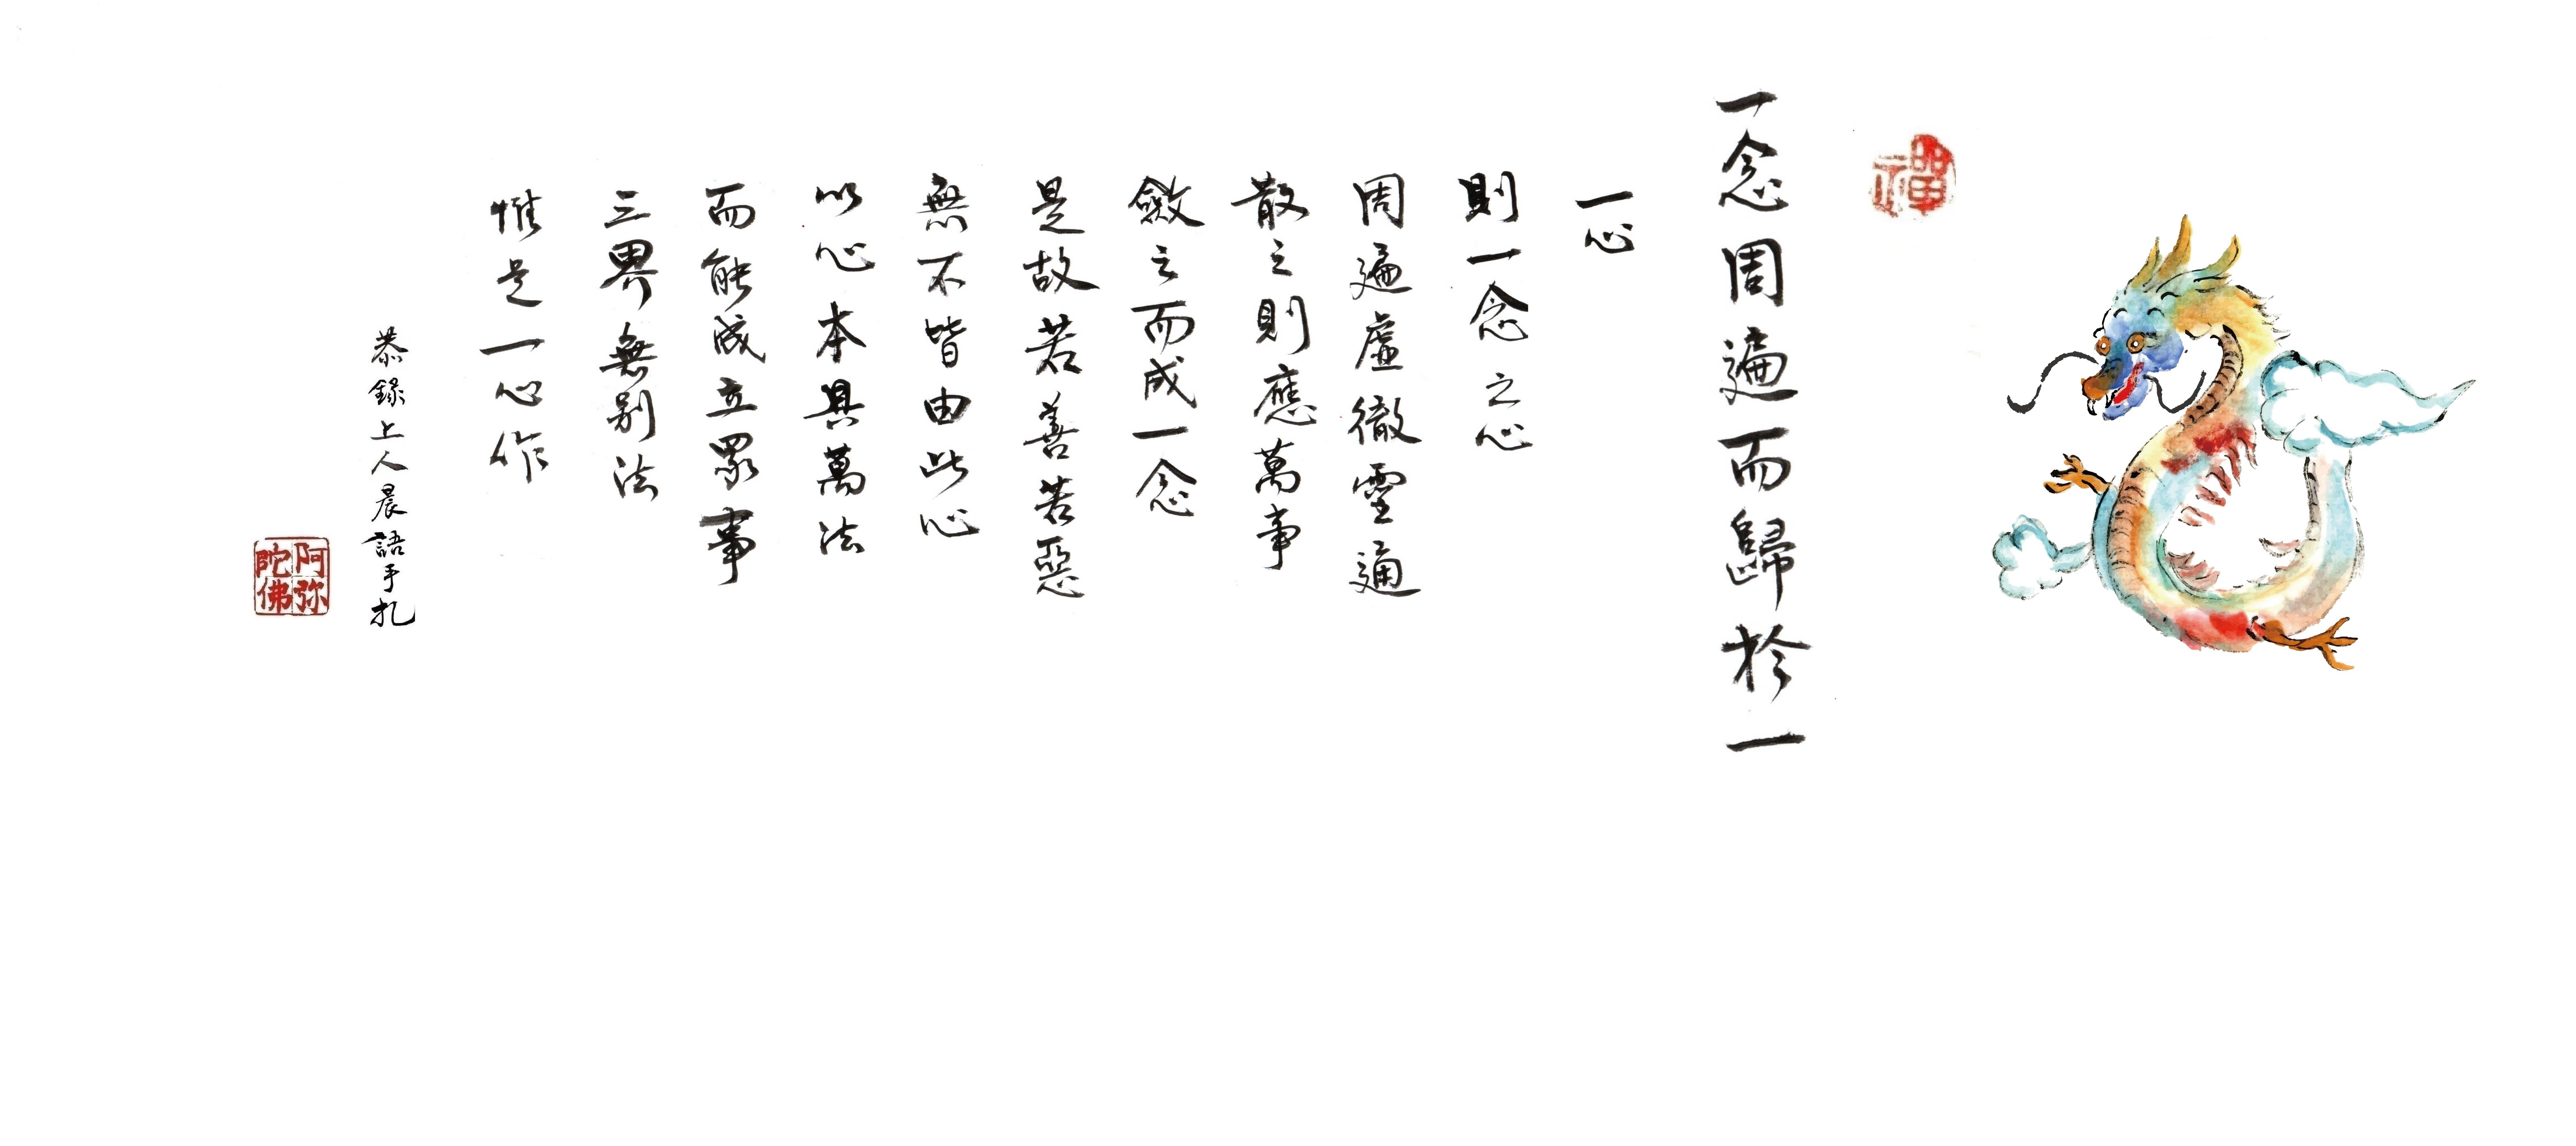 禪
一念周遍而歸於一
一心
則一念之心
周遍虛徹靈通
散之則應萬事
斂之而成一念
是故若善若惡
無不皆由此心
以心本具萬法
而能成立眾事
三界無別法
惟是一心作
恭錄上人晨語手札
阿弥
陀佛